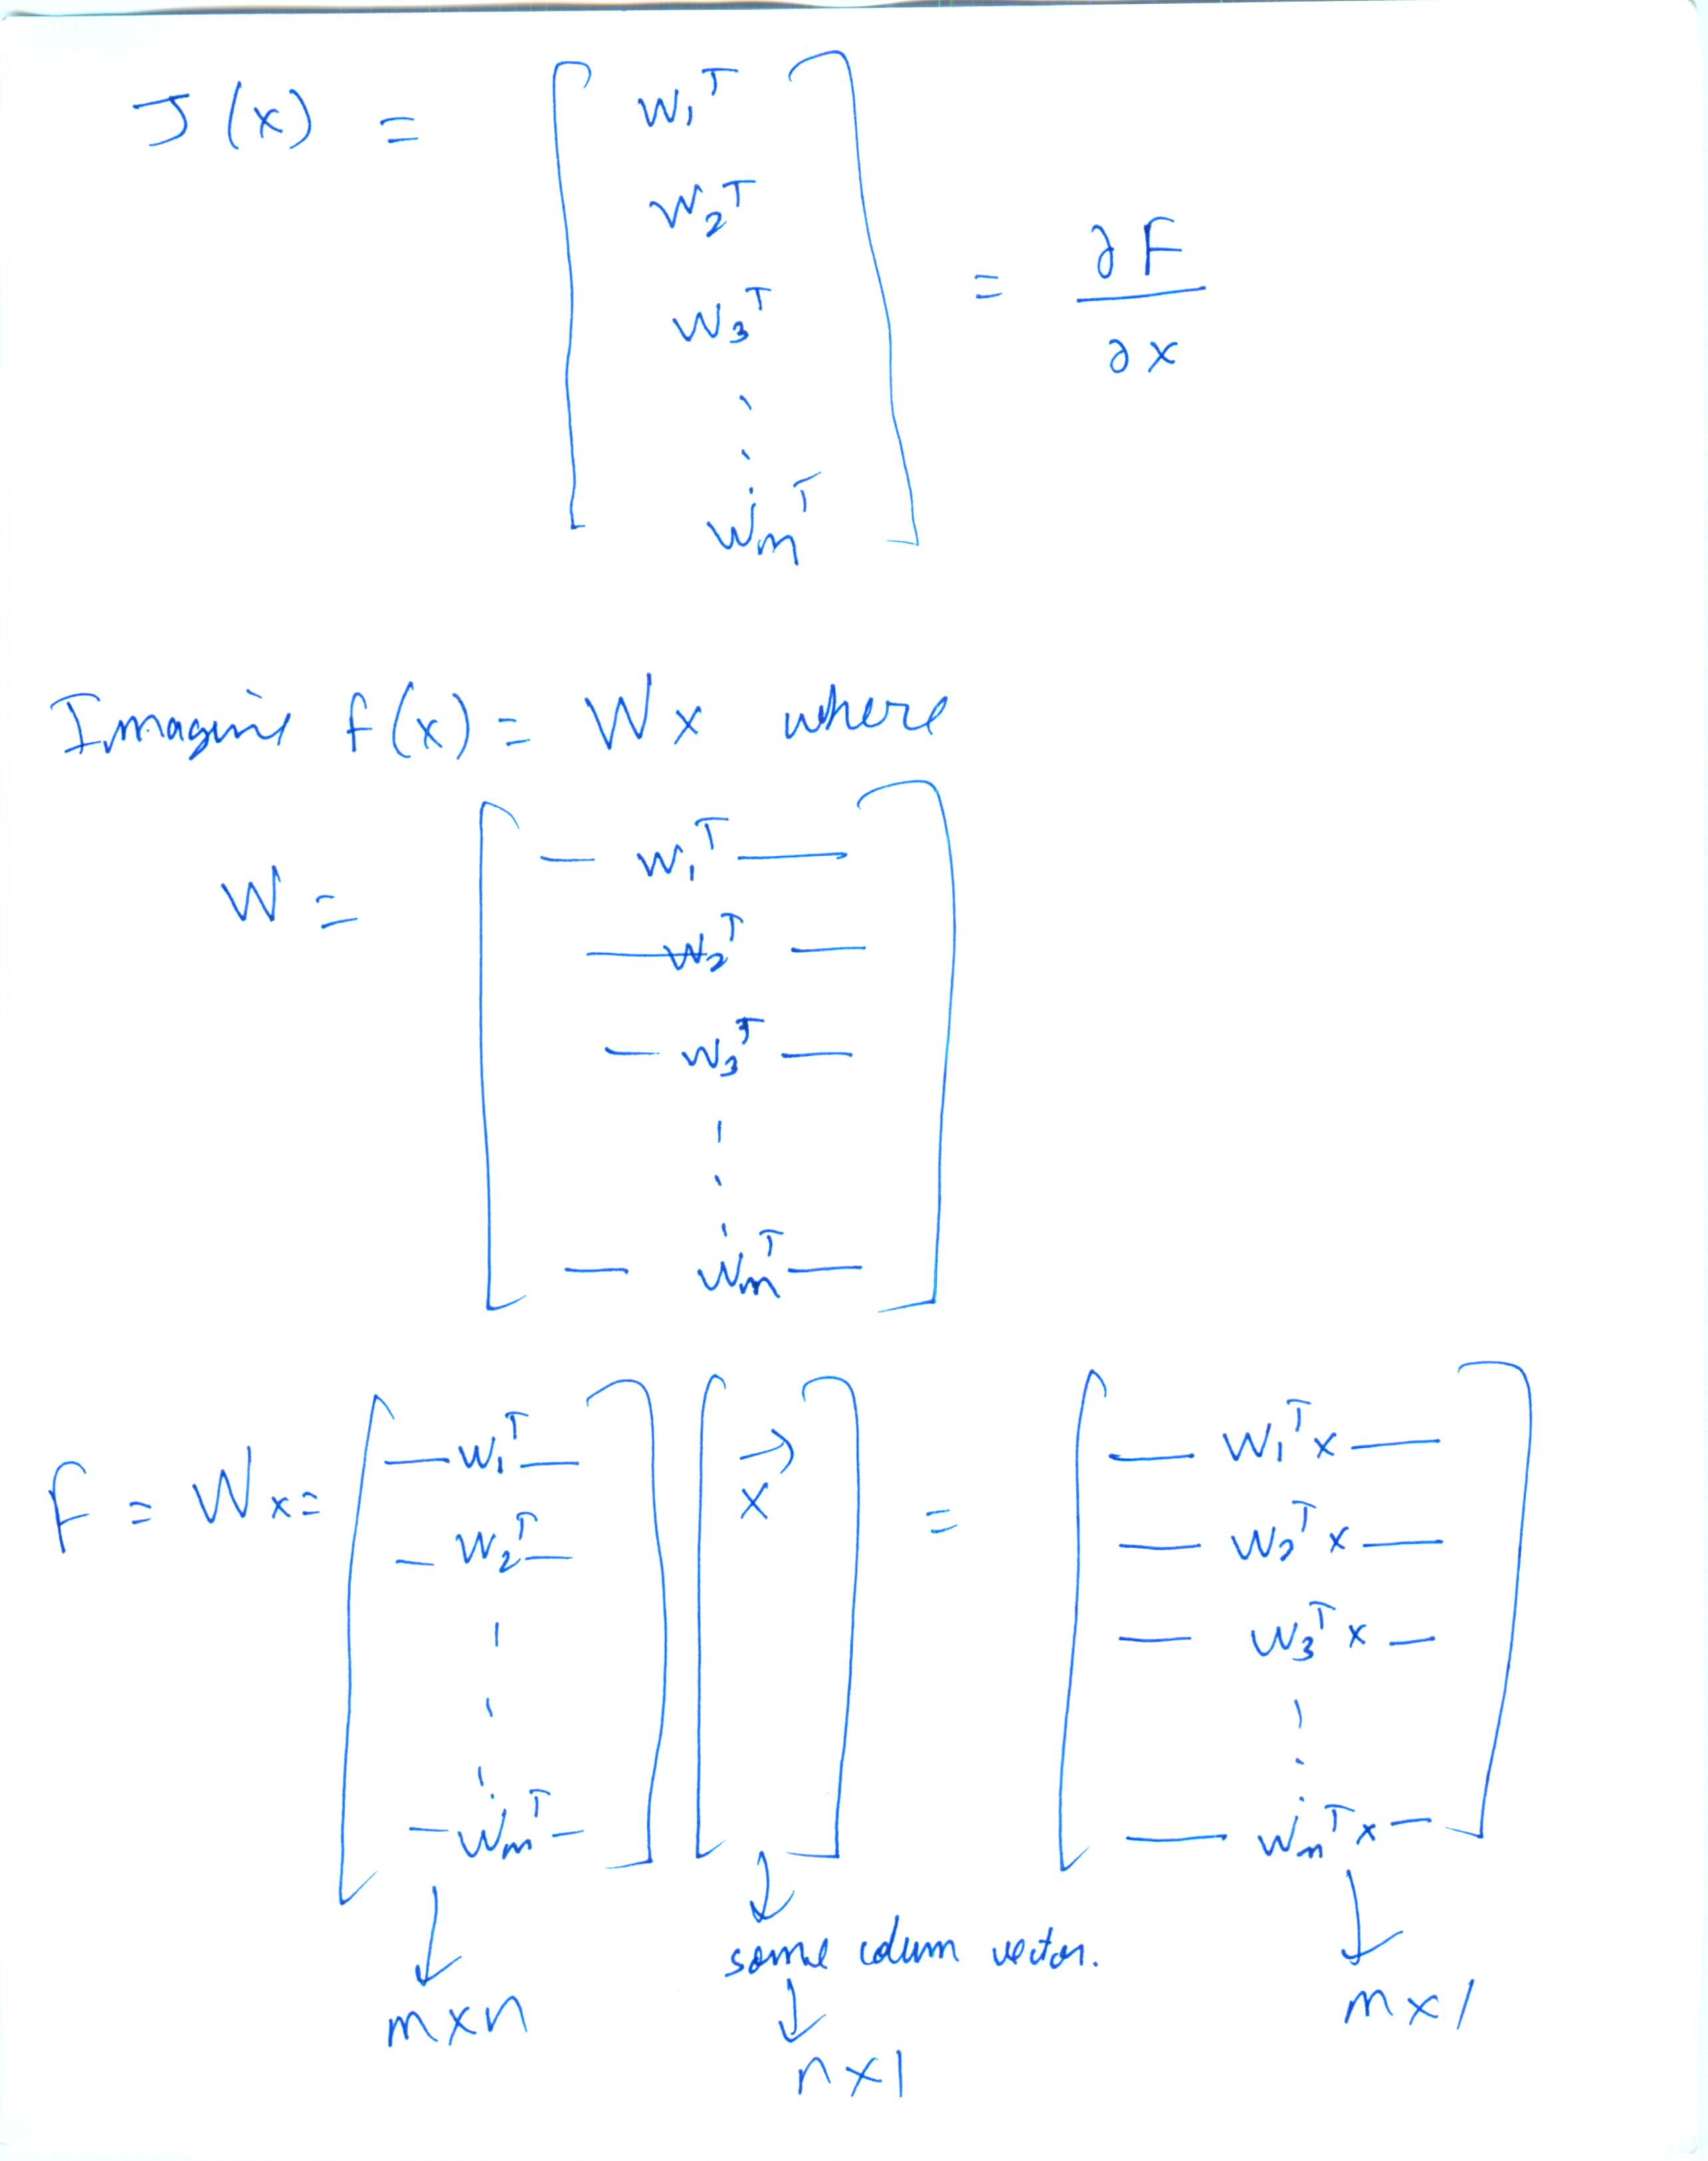 J(x) = [ w₁ᵀ
w₂ᵀ
w₃ᵀ
⋮
wₘᵀ ] = ∂F / ∂x
Imagine f(x) = Wx where
W = [ — w₁ᵀ —
— w₂ᵀ —
— w₃ᵀ —
⋮
— wₘᵀ — ]
f = Wx = [ — w₁ᵀ — ] [ x⃗ ] = [ — w₁ᵀx —
— w₂ᵀ — — w₂ᵀx —
— w₃ᵀx —
⋮ ⋮
— wₘᵀ — — wₘᵀx — ]
↓ ↓ ↓
some colum vector.
m×n ↓ m×1
n×1